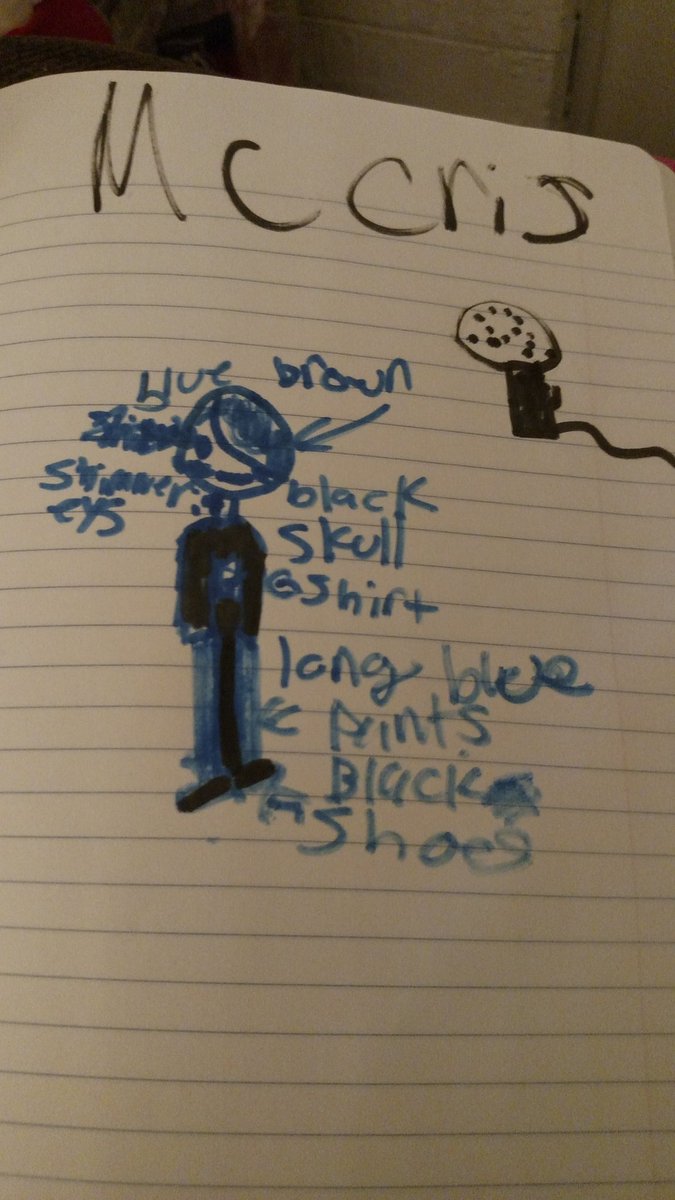 Mc cris
blue brown
shimmer
eys
black
skull
shirt
long blue
prints
Black
shoes